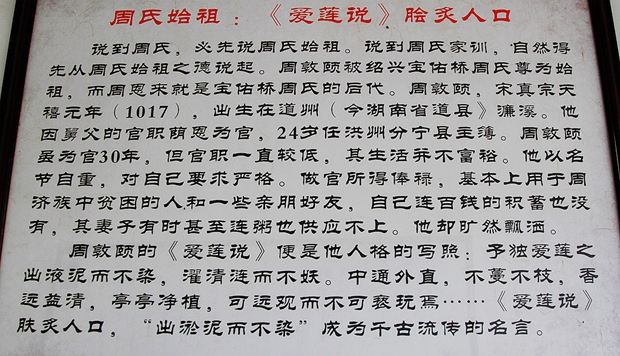 周氏始祖：《爱莲说》脍炙人口
说到周氏，必先说周氏始祖。说到周氏家训，自然得
先从周氏始祖之德说起。周敦颐被绍兴宝佑桥周氏尊为始
祖，而周恩来就是宝佑桥周氏的后代。周敦颐，宋真宗天
禧元年（1017），出生在道州（今湖南省道县》濂溪。他
因舅父的官职荫恩为官，24岁任洪州分宁县主薄。周敦颐
虽为官30年，但官职一直较低，其生活并不富裕。他以名
节自重，对自己要求严格。做官所得俸禄，基本上用于周
济族中贫困的人和一些亲朋好友，自己连百钱的积蓄也没
有，其妻子有时甚至连粥也供应不上。他却旷然飘洒。
周敦颐的《爱莲说》便是他人格的写照：予独爱莲之
出液泥而不染，濯清涟而不妖。中通外直，不蔓不枝，香
远益清，亭亭净植，可远观而不可亵玩焉……《爱莲说》
肤炙人口，“出淤泥而不染”成为千古流传的名言。